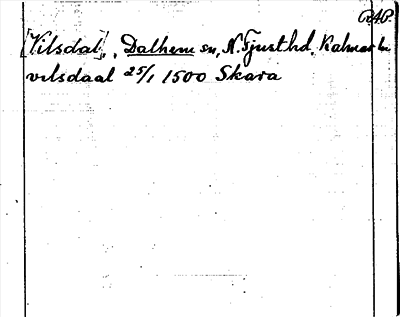 RAP.
[Vilsdal], Dalhem sn, N. Tjust hd, Kalmar ln
vilsdaal 25/1 1500 Skara